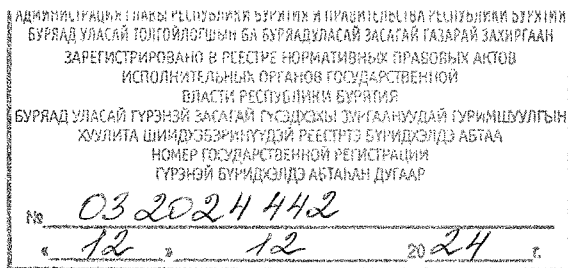 АДМИНИСТРАЦИЯ ГЛАВЫ РЕСПУБЛИКИ БУРЯТИЯ И ПРАВИТЕЛЬСТВА РЕСПУБЛИКИ БУРЯТИЯ
БУРЯАД УЛАСАЙ ТОЛГОЙЛОГШЫН БА БУРЯАД УЛАСАЙ ЗАСАГАЙ ГАЗАРАЙ ЗАХИРГААН
ЗАРЕГИСТРИРОВАНО В РЕЕСТРЕ НОРМАТИВНЫХ ПРАВОВЫХ АКТОВ
ИСПОЛНИТЕЛЬНЫХ ОРГАНОВ ГОСУДАРСТВЕННОЙ
ВЛАСТИ РЕСПУБЛИКИ БУРЯТИЯ
БУРЯАД УЛАСАЙ ГҮРЭНЭЙ ЗАСАГАЙ ГҮЙСЭДХЭХЫ ЗУРГААНУУДАЙ ГУРИМШУУЛГЫН
ХУУЛИТА ШИИДХЭБЭРИНҮҮДЭЙ РЕЕСТРТЭ БҮРИДХЭЛДЭ АБТАА
НОМЕР ГОСУДАРСТВЕННОЙ РЕГИСТРАЦИИ
ГҮРЭНЭЙ БҮРИДХЭЛДЭ АБТАҺАН ДУГААР
№ 032024442
« 12 » 12 20 24 г.